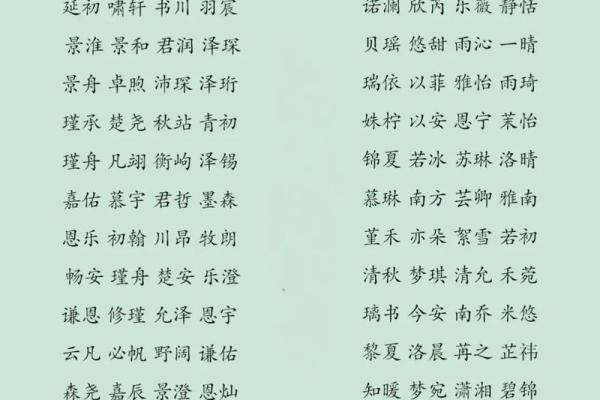 延初 啸轩 书川 羽宸
景淮 景和 君润 泽琛
景舟 卓煦 沛琛 泽珩
瑾承 楚尧 秋站 青初
瑾舟 凡翊 衡岣 泽锡
嘉佑 慕宇 君哲 墨森
恩乐 初翰 川昂 牧朗
畅安 瑾舟 楚安 乐澄
谦恩 修瑾 允泽 恩宇
云凡 必帆 野阔 谦佑
森尧 嘉辰 景澄 恩灿
诺澜 欣芮 乐薇 静恬
贝瑶 悠甜 雨沁 一晴
瑞依 以菲 雅怡 雨琦
姝柠 以安 恩宁 茉怡
锦夏 若冰 苏琳 洛晴
慕琳 南方 芸卿 雅南
堇禾 亦朵 絮雪 若初
清秋 梦琪 清允 禾菀
璃书 今安 南乔 米悠
黎夏 洛晨 苒之 芷祎
知暖 梦宛 潇湘 碧锦